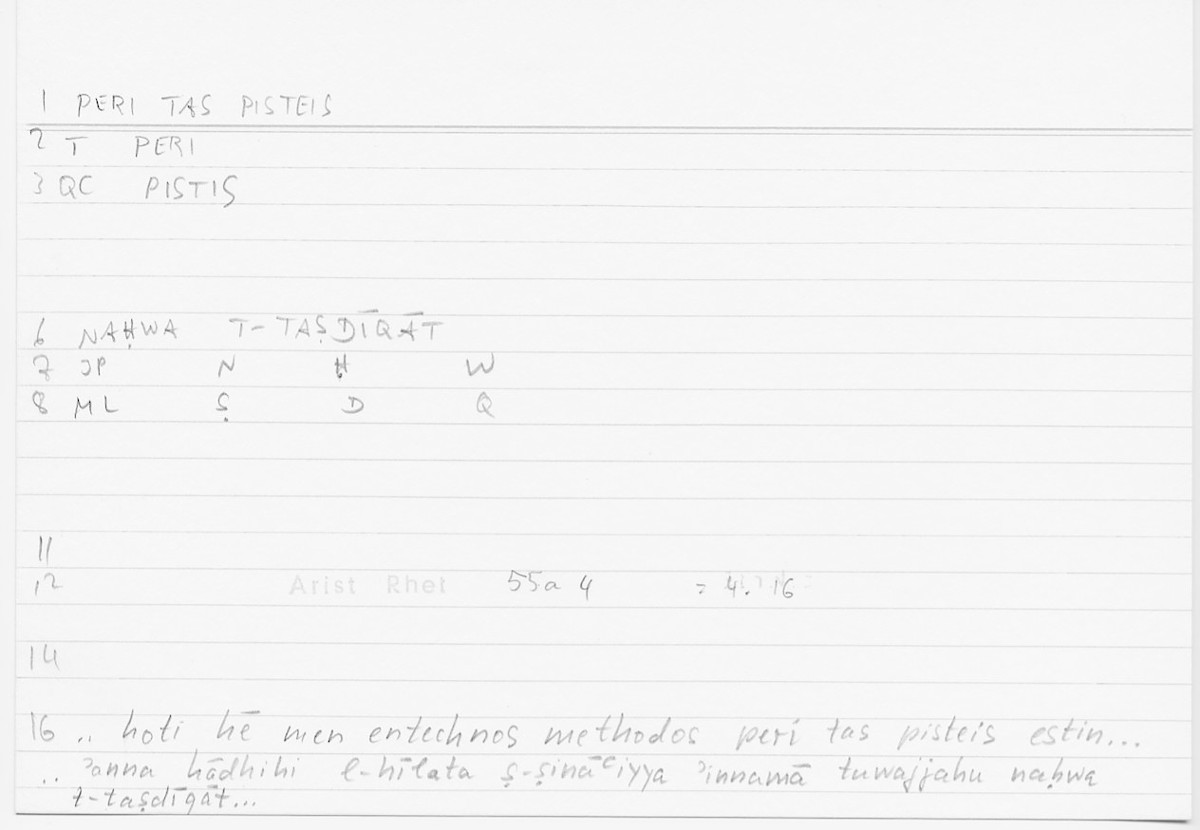 1 PERI TAS PISTEIS
2 T PERI
3 QC PISTIS
6 NAḤWA T-TAṢDĪQĀT
7 JP N Ḥ W
8 ML Ṣ D Q
11
12 Arist Rhet 55a 4 = 4. 16
14
16 .. hoti hē men entechnos methodos peri tas pisteis estin...
.. ʾanna hādhihi l-ḥīlata ṣ-ṣināʿiyya ʾinnamā tuwajjahu naḥwa
t-taṣdīqāt...